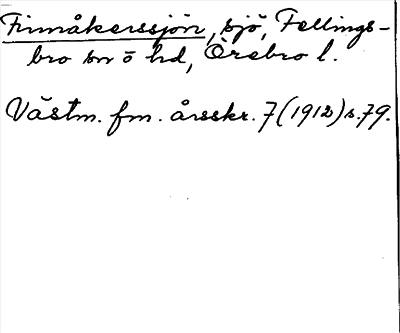 Finnåkerssjön, sjö, Fellings-
bro sn o hd, Örebro l.
Västm. fm. årsskr. 7 (1912) s. 79.